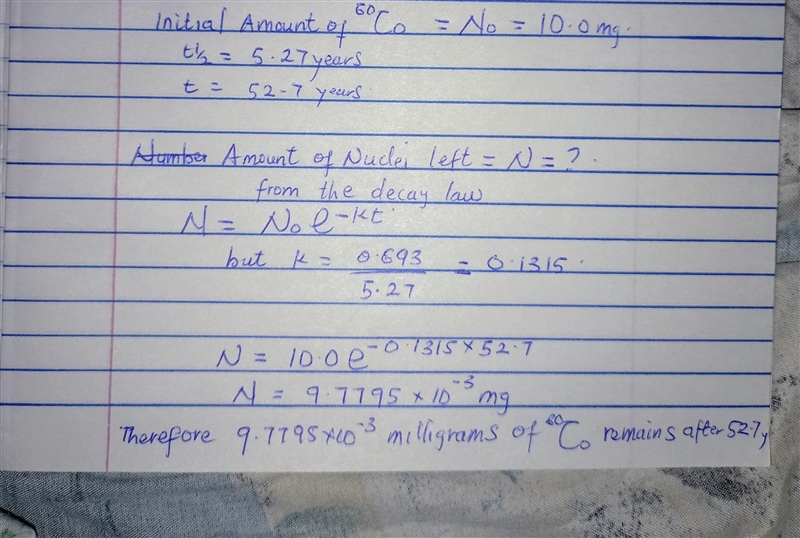 Initial Amount of ⁶⁰Co = No = 10.0 mg.
t½ = 5.27 years
t = 52.7 years
Number Amount of Nuclei left = N = ?.
from the decay law
N = No e^-kt
but k = 0.693/5.27 = 0.1315.
N = 10.0 e^-0.1315 × 52.7
N = 9.7795 × 10^-3 mg
Therefore 9.7795×10^-3 milligrams of ⁶⁰Co remains after 52.7y